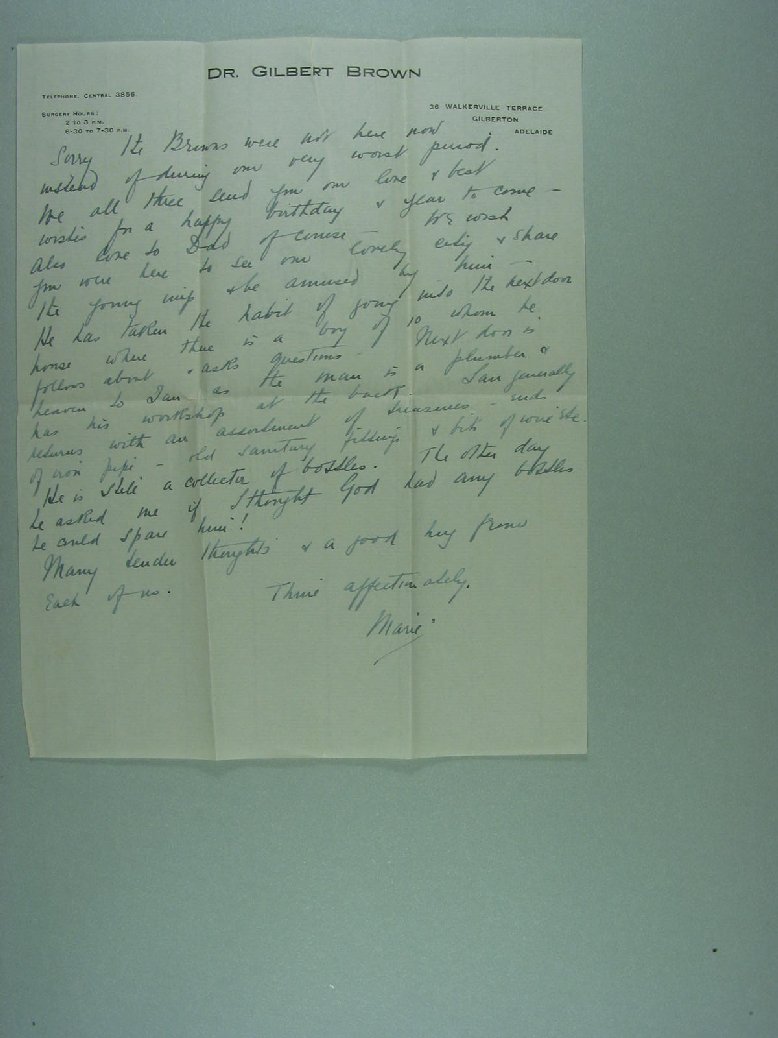 DR. GILBERT BROWN
TELEPHONE, CENTRAL 3856.
SURGERY HOURS:
2 TO 3 P.M.
6-30 TO 7-30 P.M.
36 WALKERVILLE TERRACE
GILBERTON
ADELAIDE
Sorry the Browns were not here now
instead of during our very worst period.
We all three send you our love & best
wishes for a happy birthday & year to come –
Also love to Dad of course – We wish
you were here to see our lovely city & share
the young imp & be amused by him –
He has taken the habit of going into the next door
house where there is a boy of 10 whom he
follows about & asks questions – Next door is
heaven to Ian as the man is a plumber &
has his workshop at the back. Ian generally
returns with an assortment of treasures – ends
of iron pipe – old sanitary fittings & bits of wire etc.
He is still a collector of bottles. The other day
he asked me if I thought God had any bottles
he could spare him!
Many tender thoughts & a good hug from
each of us.
Thine affectionately,
Marie